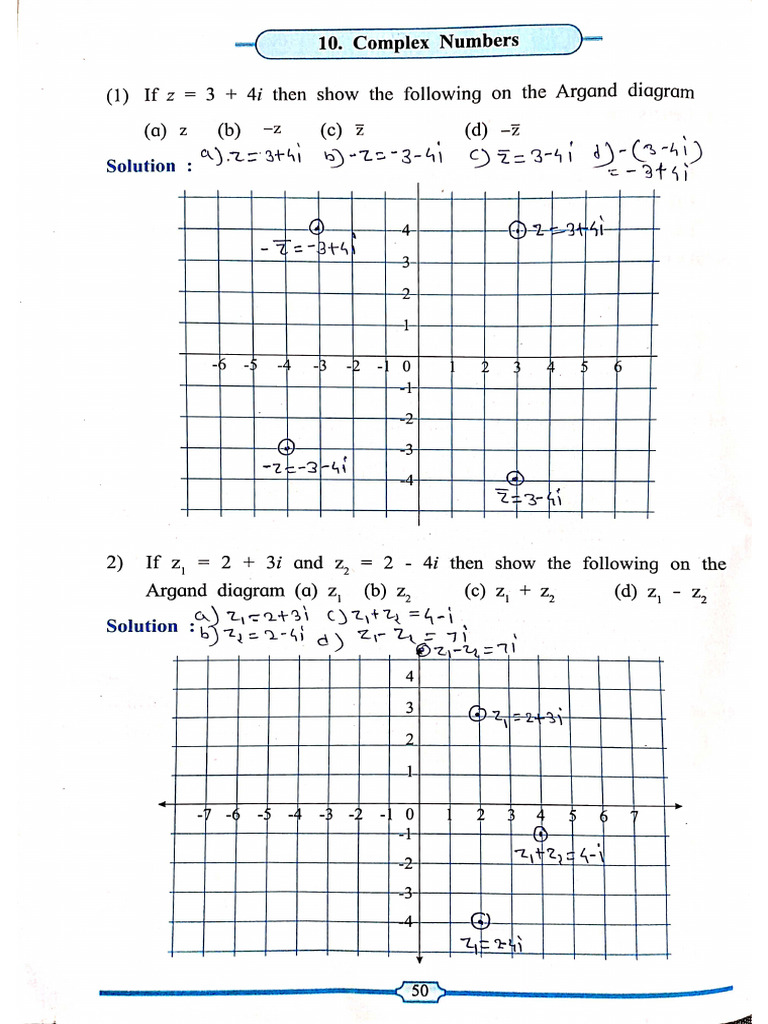 10. Complex Numbers
(1) If z = 3 + 4i then show the following on the Argand diagram
(a) z (b) –z (c) z̅ (d) –z̅
Solution : a). z = 3+4i b) -z = -3-4i c) z̅ = 3-4i d) -(3-4i)
= -3+4i
4 z = 3+4i
-z̅ = -3+4i
3
2
1
-6 -5 -4 -3 -2 -1 0 1 2 3 4 5 6
-1
-2
-3
-z = -3-4i
-4
z̅ = 3-4i
2) If z₁ = 2 + 3i and z₂ = 2 - 4i then show the following on the
Argand diagram (a) z₁ (b) z₂ (c) z₁ + z₂ (d) z₁ - z₂
a) z₁ = 2+3i c) z₁+z₂ = 4-i
Solution : b) z₂ = 2-4i d) z₁-z₂ = 7i
z₁-z₂ = 7i
4
3
z₁ = 2+3i
2
1
-7 -6 -5 -4 -3 -2 -1 0 1 2 3 4 5 6 7
-1
z₁+z₂ = 4-i
-2
-3
-4
z₁ = 2-4i
50